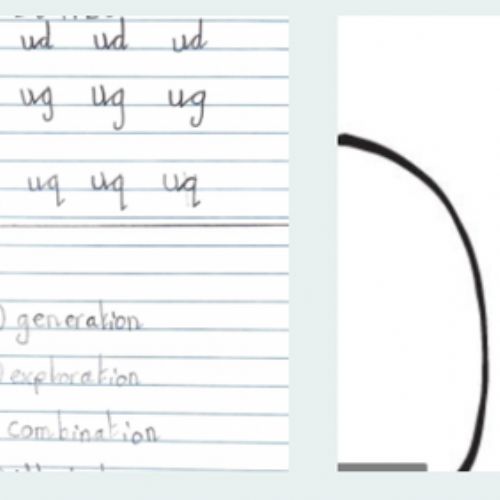 ud ud ud
ug ug ug
uq uq uq
) generation
) exploration
combination